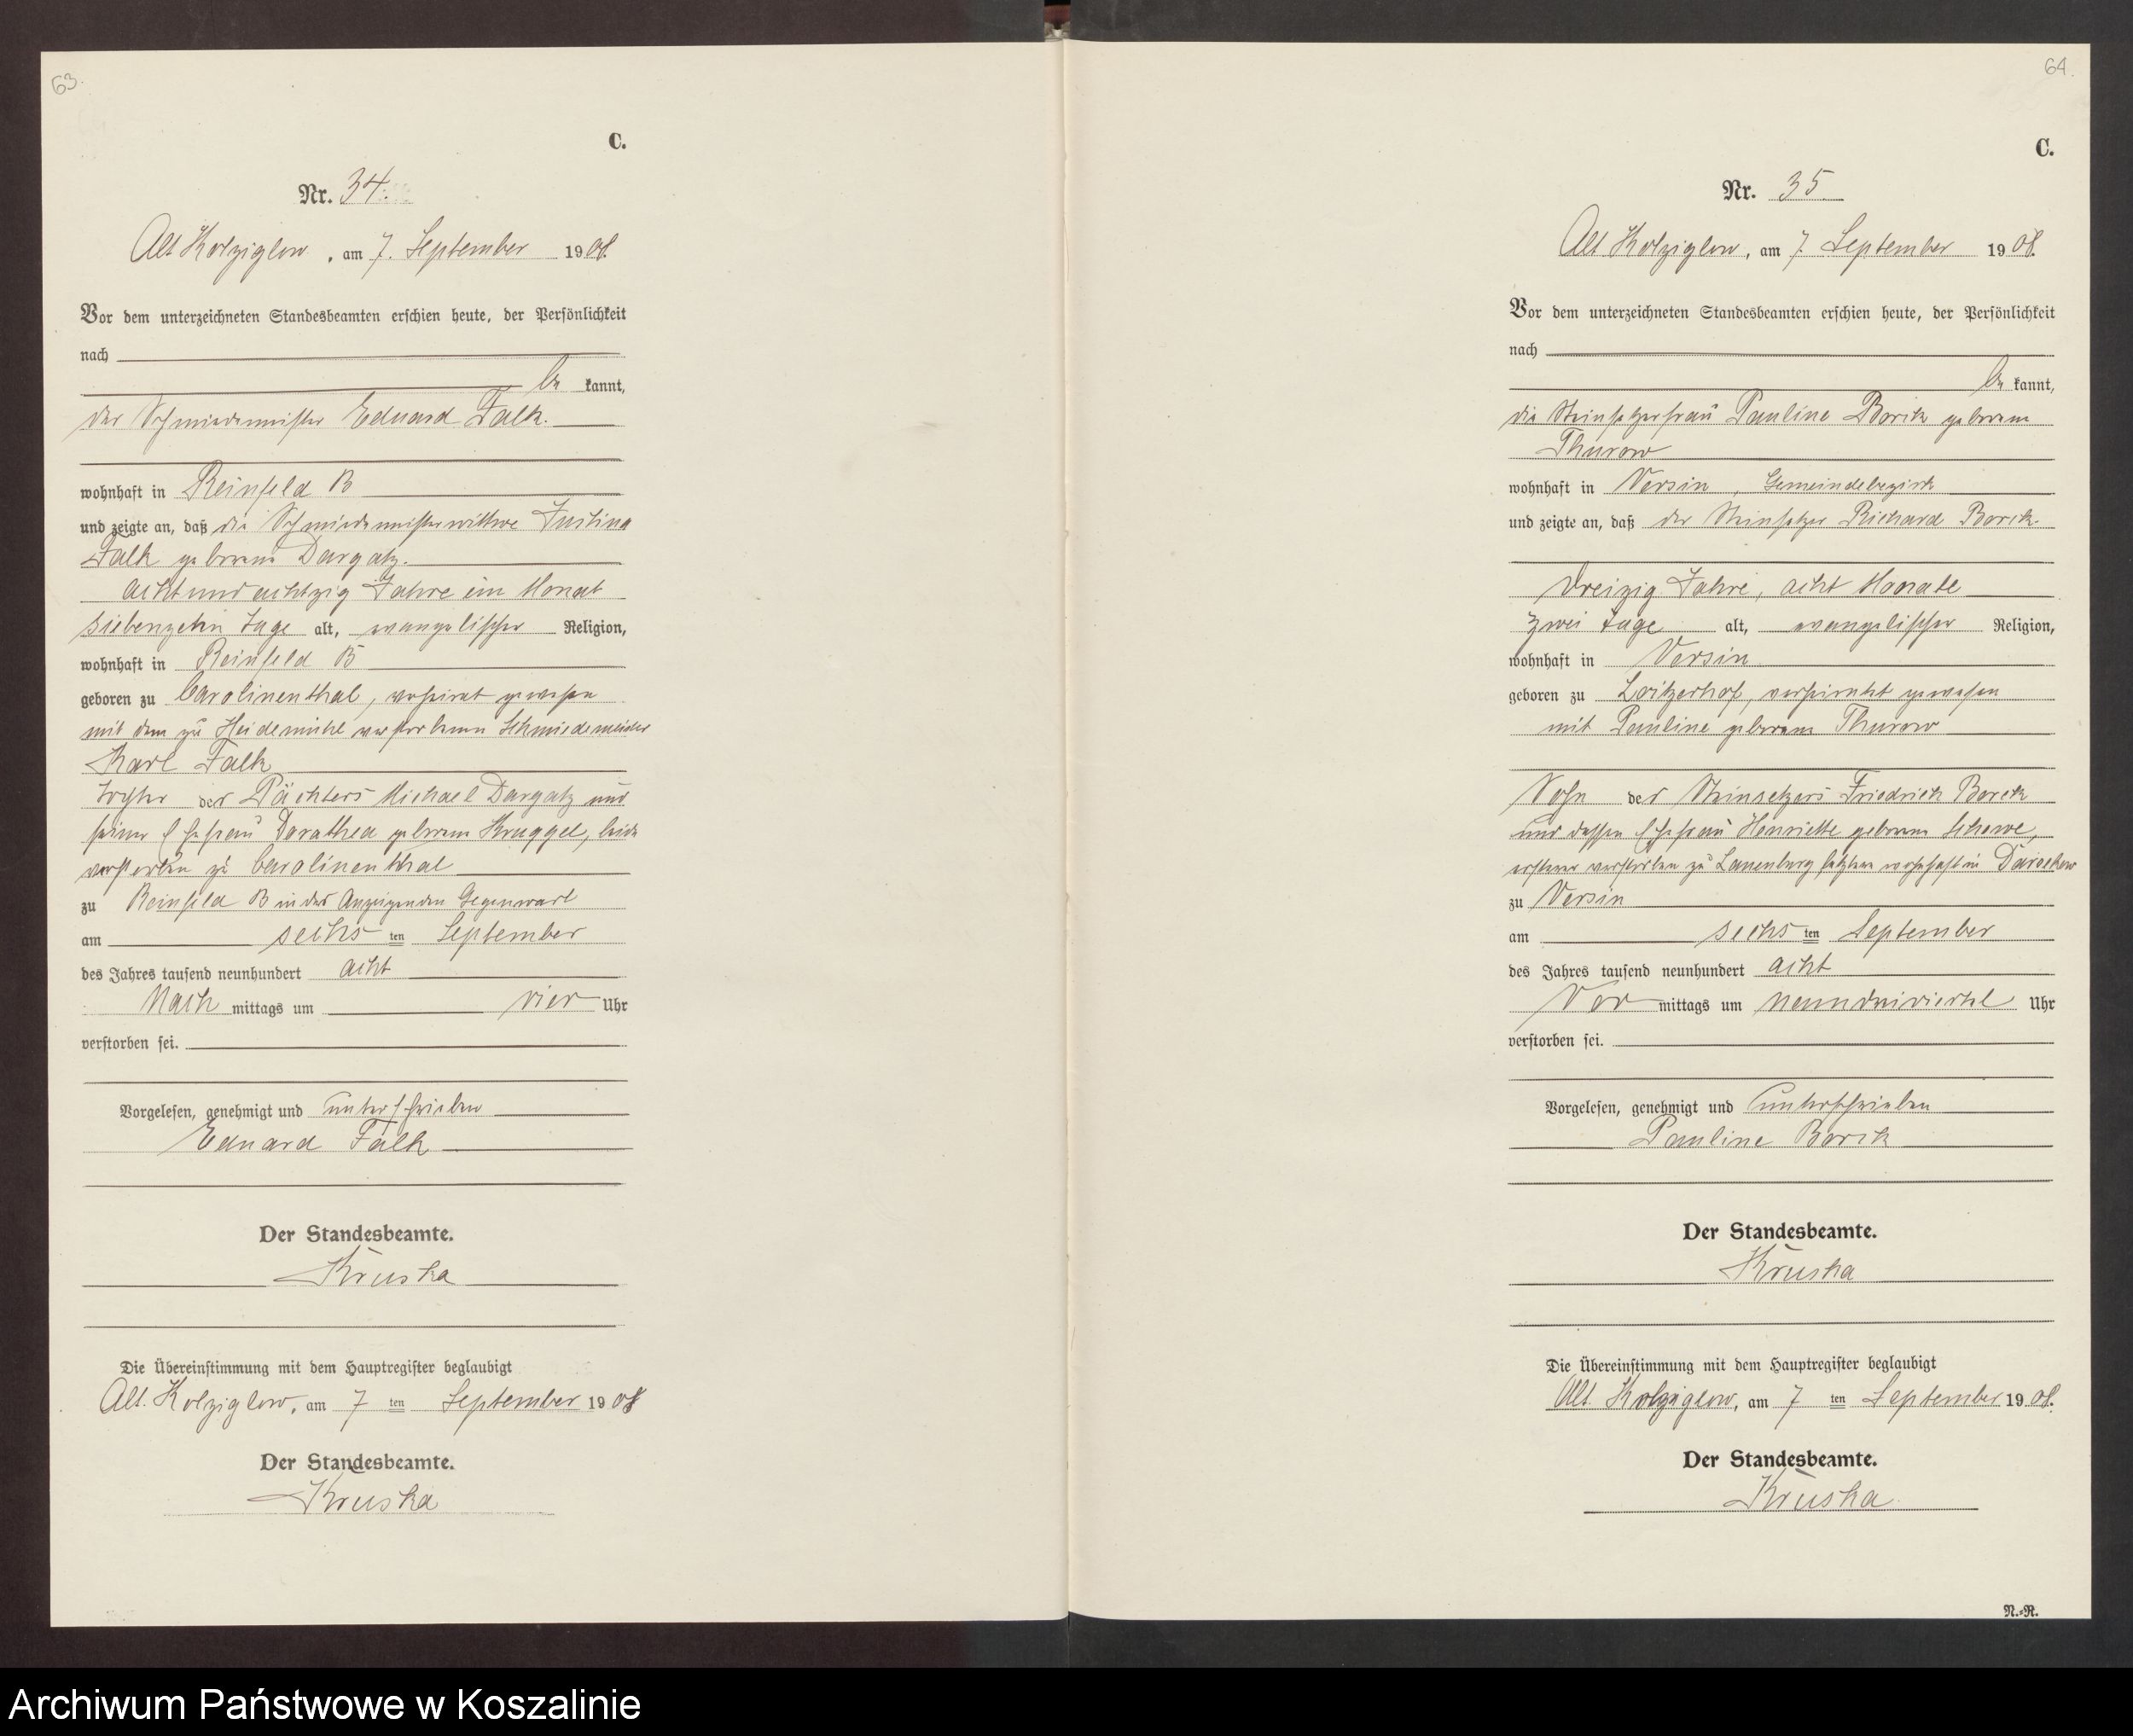 63.
C.
Nr. 34.
Alt Kolziglow, am 7. September 1908.
Vor dem unterzeichneten Standesbeamten erschien heute, der Persönlichkeit
nach
be kannt,
der Schmiedemeister Eduard Falk.
wohnhaft in Reinfeld B
und zeigte an, daß die Schmiedemeisterwittwe Justine
Falk geborene Dargatz.
achtundachtzig Jahre ein Monat
siebenzehn Tage alt, evangelischer Religion,
wohnhaft in Reinfeld B
geboren zu Carolinenthal, verheirat gewesen
mit dem zu Heidemühl verstorbenen Schmiedemeister
Karl Falk
Tochter des Pächters Michael Dargatz und
seiner Ehefrau Dorathea geborene Kruggel, beide
verstorben zu Carolinenthal
zu Reinfeld B in des Anzeigenden Gegenwart
am sechs ten September
des Jahres tausend neunhundert acht
Nach mittags um vier Uhr
verstorben sei.
Vorgelesen, genehmigt und unterschrieben
Eduard Falk
Der Standesbeamte.
Kruska
Die Übereinstimmung mit dem Hauptregister beglaubigt
Alt. Kolziglow, am 7 ten September 1908
Der Standesbeamte.
Kruska
64.
C.
Nr. 35.
Alt Kolziglow, am 7. September 1908.
Vor dem unterzeichneten Standesbeamten erschien heute, der Persönlichkeit
nach
be kannt,
die Steinsetzerfrau Pauline Borck geborene
Thurow
wohnhaft in Versin, Gemeindebezirk
und zeigte an, daß der Steinsetzer Richard Borck.
dreizig Jahre, acht Monate
zwei Tage alt, evangelischer Religion,
wohnhaft in Versin
geboren zu Loitzerhof, verheirathet gewesen
mit Pauline geborene Thurow
Sohn des Steinsetzers Friedrich Borck
und dessen Ehefrau Henriette geborene Schewe,
ersterer verstorben zu Lauenburg letztere wohnhaft in
zu Versin
am sechs ten September
des Jahres tausend neunhundert acht
Vor mittags um neundreiviertel Uhr
verstorben sei.
Vorgelesen, genehmigt und unterschrieben
Pauline Borck
Der Standesbeamte.
Kruska
Die Übereinstimmung mit dem Hauptregister beglaubigt
Alt. Kolziglow, am 7 ten September 1908.
Der Standesbeamte.
Kruska
N.=R.
Archiwum Państwowe w Koszalinie